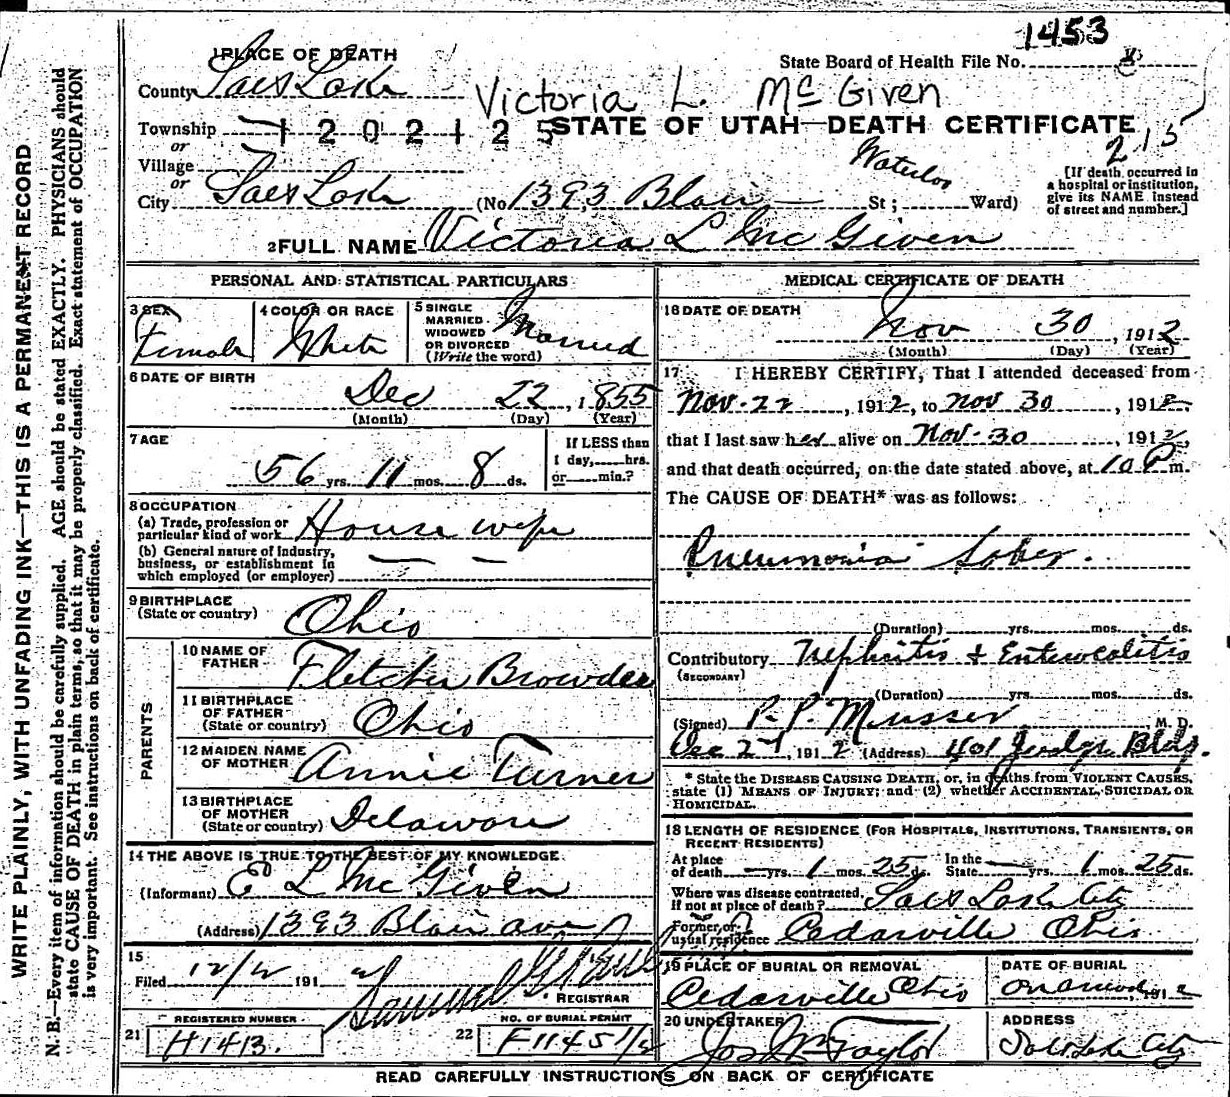 1453
1 PLACE OF DEATH
State Board of Health File No.
County Salt Lake
Victoria L. McGiven
Township
or
1202125
STATE OF UTAH—DEATH CERTIFICATE
215
Village
or
Waterloo
City Salt Lake (No 1393 Blair St; Ward)
[If death occurred in
a hospital or institution,
give its NAME instead
of street and number.]
2 FULL NAME Victoria L Mc Given
PERSONAL AND STATISTICAL PARTICULARS
3 SEX
Female
4 COLOR OR RACE
White
5 SINGLE
MARRIED
WIDOWED
OR DIVORCED
(Write the word)
Married
6 DATE OF BIRTH
Dec 22, 1855
(Month) (Day) (Year)
7 AGE
56 yrs. 11 mos. 8 ds.
If LESS than
1 day, hrs.
or min.?
8 OCCUPATION
(a) Trade, profession or
particular kind of work House wife
(b) General nature of industry,
business, or establishment in
which employed (or employer) — —
9 BIRTHPLACE
(State or country) Ohio
PARENTS
10 NAME OF
FATHER Fletcher Browder
11 BIRTHPLACE
OF FATHER
(State or country) Ohio
12 MAIDEN NAME
OF MOTHER Annie Turner
13 BIRTHPLACE
OF MOTHER
(State or country) Delaware
14 THE ABOVE IS TRUE TO THE BEST OF MY KNOWLEDGE
(Informant) E L Mc Given
(Address) 1393 Blair ave
15
Filed 12/2 191
Samuel G. Paul
REGISTRAR
21 REGISTERED NUMBER
H1413.
22 NO. OF BURIAL PERMIT
F1145 1/2
MEDICAL CERTIFICATE OF DEATH
16 DATE OF DEATH
Nov 30, 1912
(Month) (Day) (Year)
17 I HEREBY CERTIFY, That I attended deceased from
Nov. 22, 1912, to Nov 30, 1912,
that I last saw her alive on Nov. 30, 1912,
and that death occurred, on the date stated above, at 10 P m.
The CAUSE OF DEATH* was as follows:
Pneumonia Lober.
(Duration) yrs. mos. ds.
Contributory Nephritis + Enterocolitis
(SECONDARY)
(Duration) yrs. mos. ds.
(Signed) P. P. Musser, M. D.
Dec 2nd, 1912 (Address) 401 Judge Bldg.
* State the DISEASE CAUSING DEATH, or, in deaths from VIOLENT CAUSES,
state (1) MEANS OF INJURY; and (2) whether ACCIDENTAL, SUICIDAL OR
HOMICIDAL.
18 LENGTH OF RESIDENCE (FOR HOSPITALS, INSTITUTIONS, TRANSIENTS, OR
RECENT RESIDENTS)
At place
of death — yrs. 1 mos. 25 ds.
In the
State — yrs. 1 mos. 25 ds.
Where was disease contracted,
If not at place of death? Salt Lake City
Former or
usual residence Cedarville Ohio
19 PLACE OF BURIAL OR REMOVAL
Cedarville Ohio
DATE OF BURIAL
On arrival, 1912
20 UNDERTAKER
Jos Wm Taylor
ADDRESS
Salt Lake City
READ CAREFULLY INSTRUCTIONS ON BACK OF CERTIFICATE
WRITE PLAINLY, WITH UNFADING INK—THIS IS A PERMANENT RECORD
N. B.—Every item of information should be carefully supplied. AGE should be stated EXACTLY. PHYSICIANS should
state CAUSE OF DEATH in plain terms, so that it may be properly classified. Exact statement of OCCUPATION
is very important. See instructions on back of certificate.